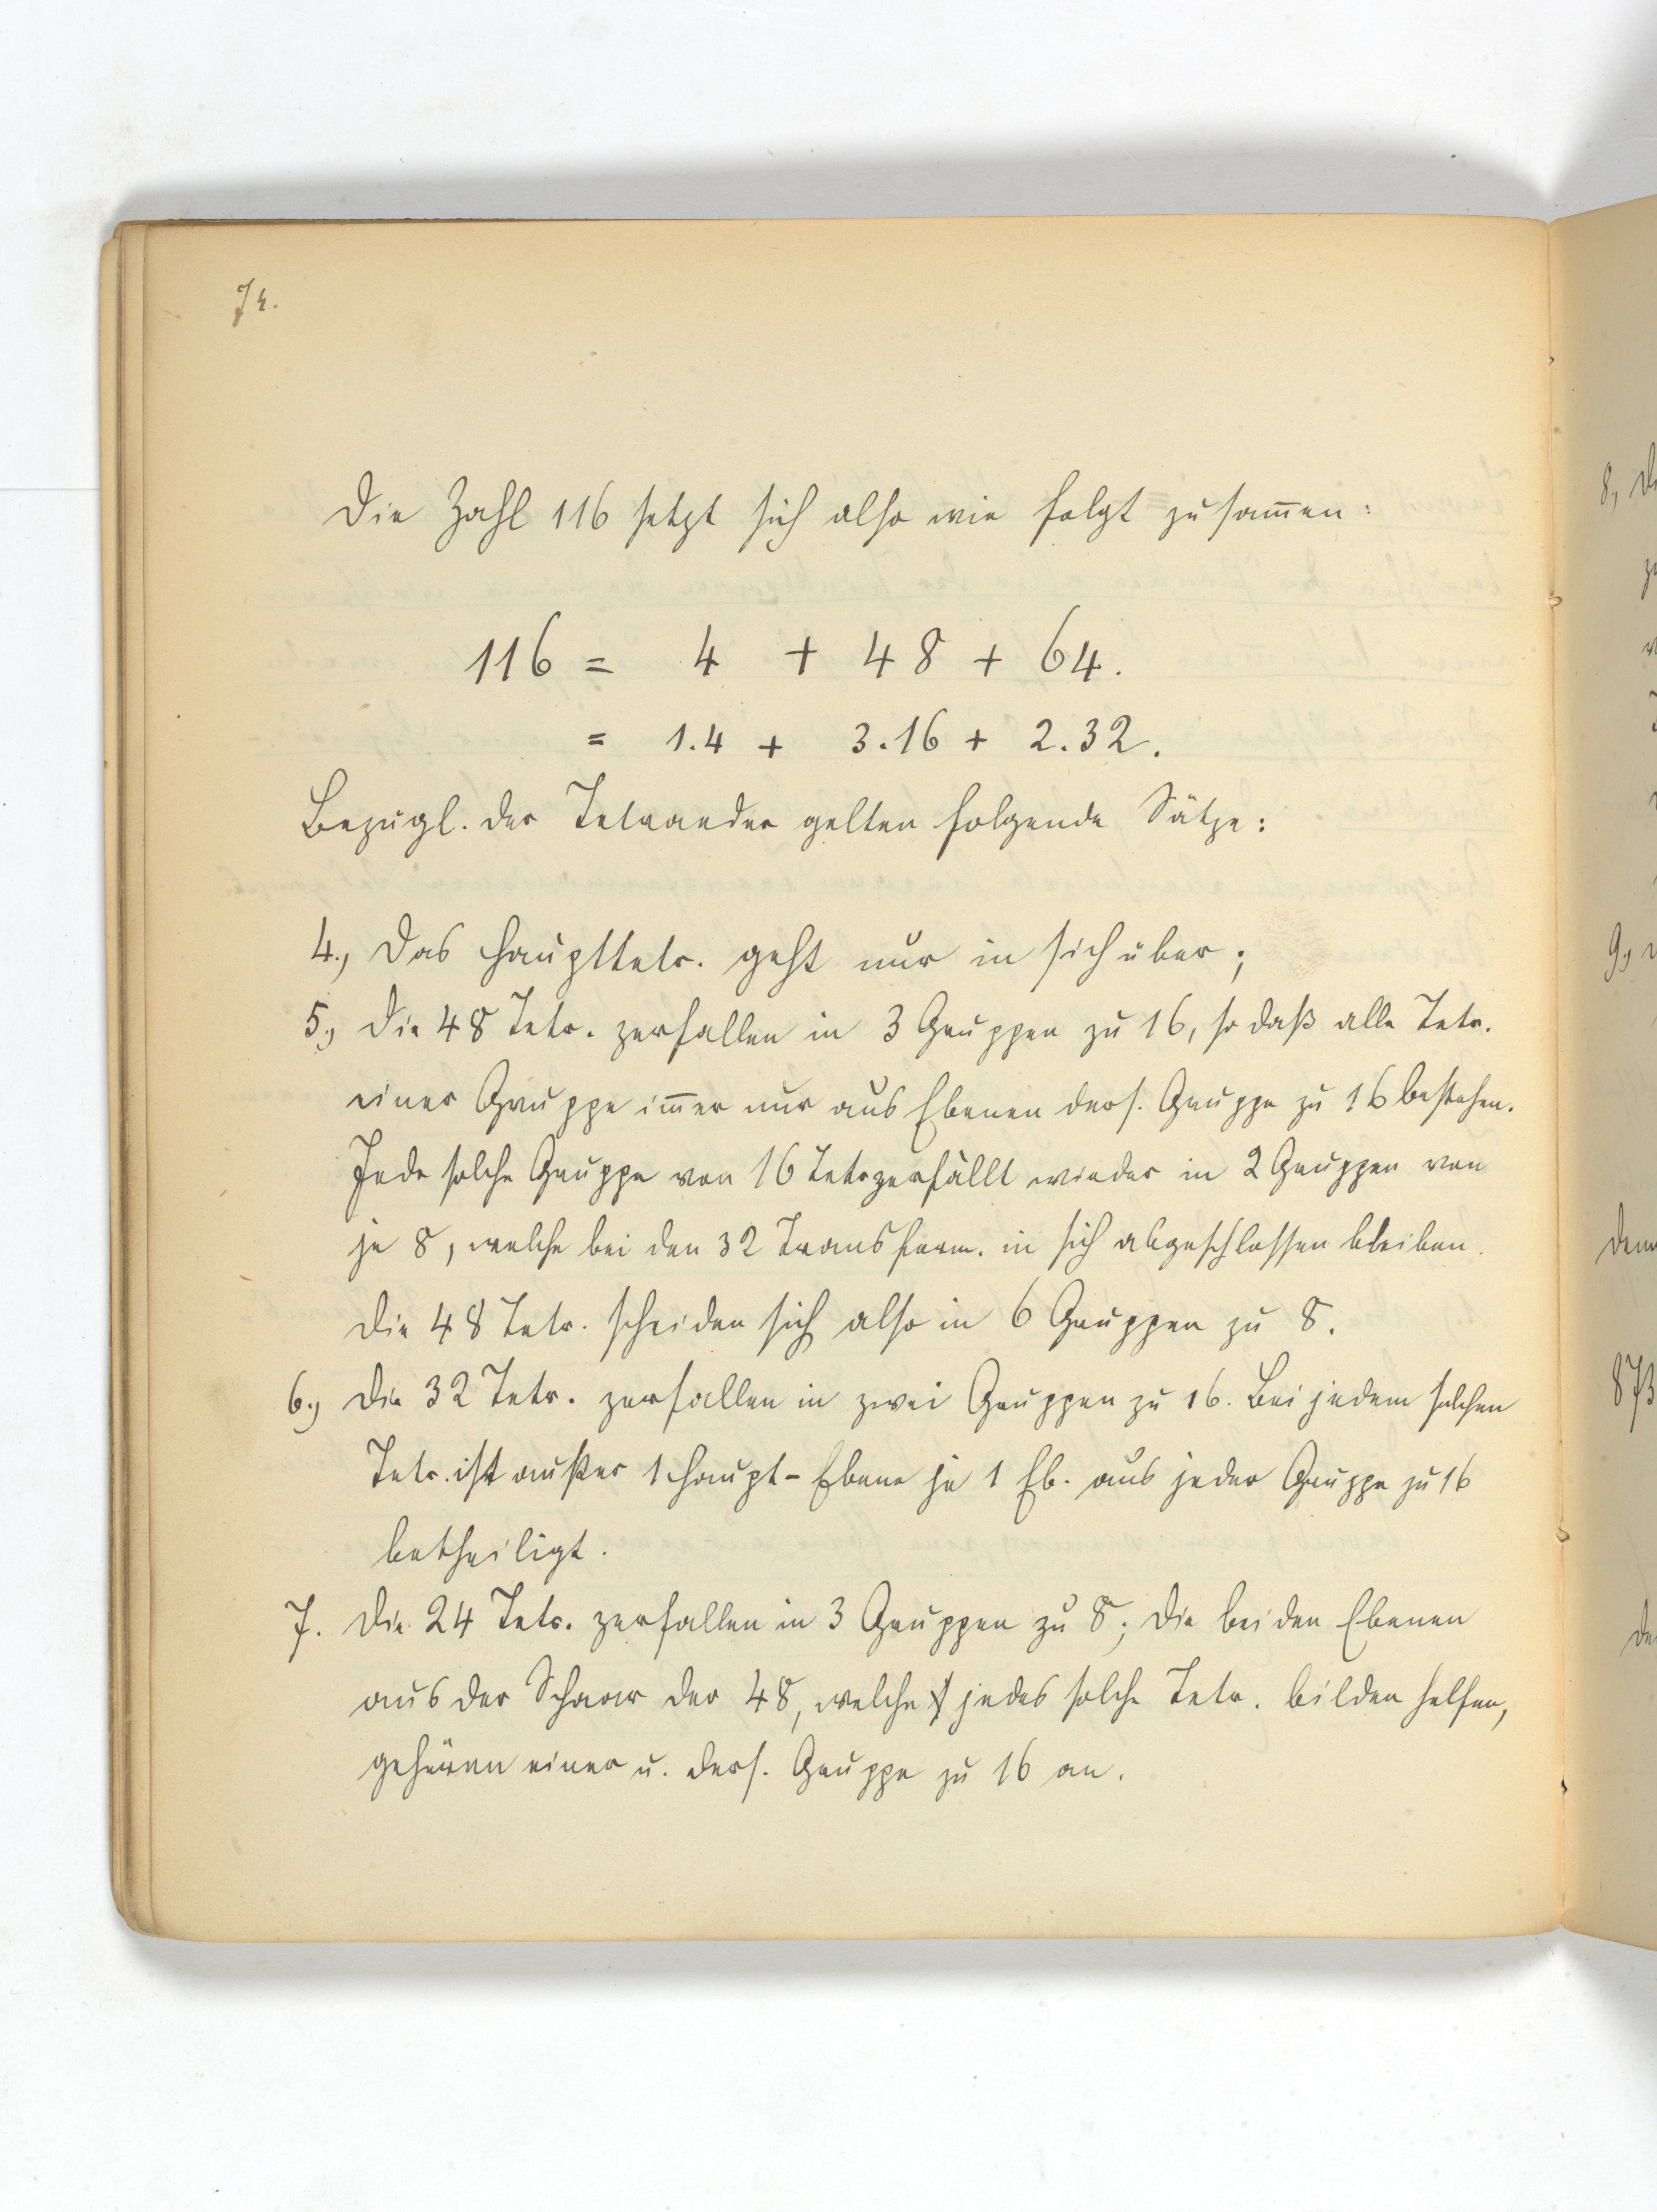 74.
Die Zahl 116 setzt sich also wie folgt zusam̅en:
116 = 4 + 48 + 64.
= 1.4 + 3.16 + 2.32.
Bezügl. der Tetraeder gelten folgende Sätze:
4., Das Haupttetr. geht nur in sich über;
5., Die 48 Tetr. zerfallen in 3 Gruppen zu 16, so daß alle Tetr.
einer Gruppe im̅er nur aus Ebenen ders. Gruppe zu 16 bestehen.
Jede solche Gruppe von 16 Tetr zerfällt wieder in 2 Gruppen von
je 8, welche bei den 32 Transform. in sich abgeschlossen bleiben.
Die 48 Tetr. scheiden sich also in 6 Gruppen zu 8.
6., Die 32 Tetr. zerfallen in zwei Gruppen zu 16. Bei jedem solchen
Tetr. ist außer 1 Haupt-Ebene je 1 Eb. aus jeder Gruppe zu 16
betheiligt.
7. Die 24 Tetr. zerfallen in 3 Gruppen zu 8; Die beiden Ebenen
aus der Schaar der 48, welche jedes solche Tetr. bilden helfen,
gehören einer u. ders. Gruppe zu 16 an.
8,
9.,
873